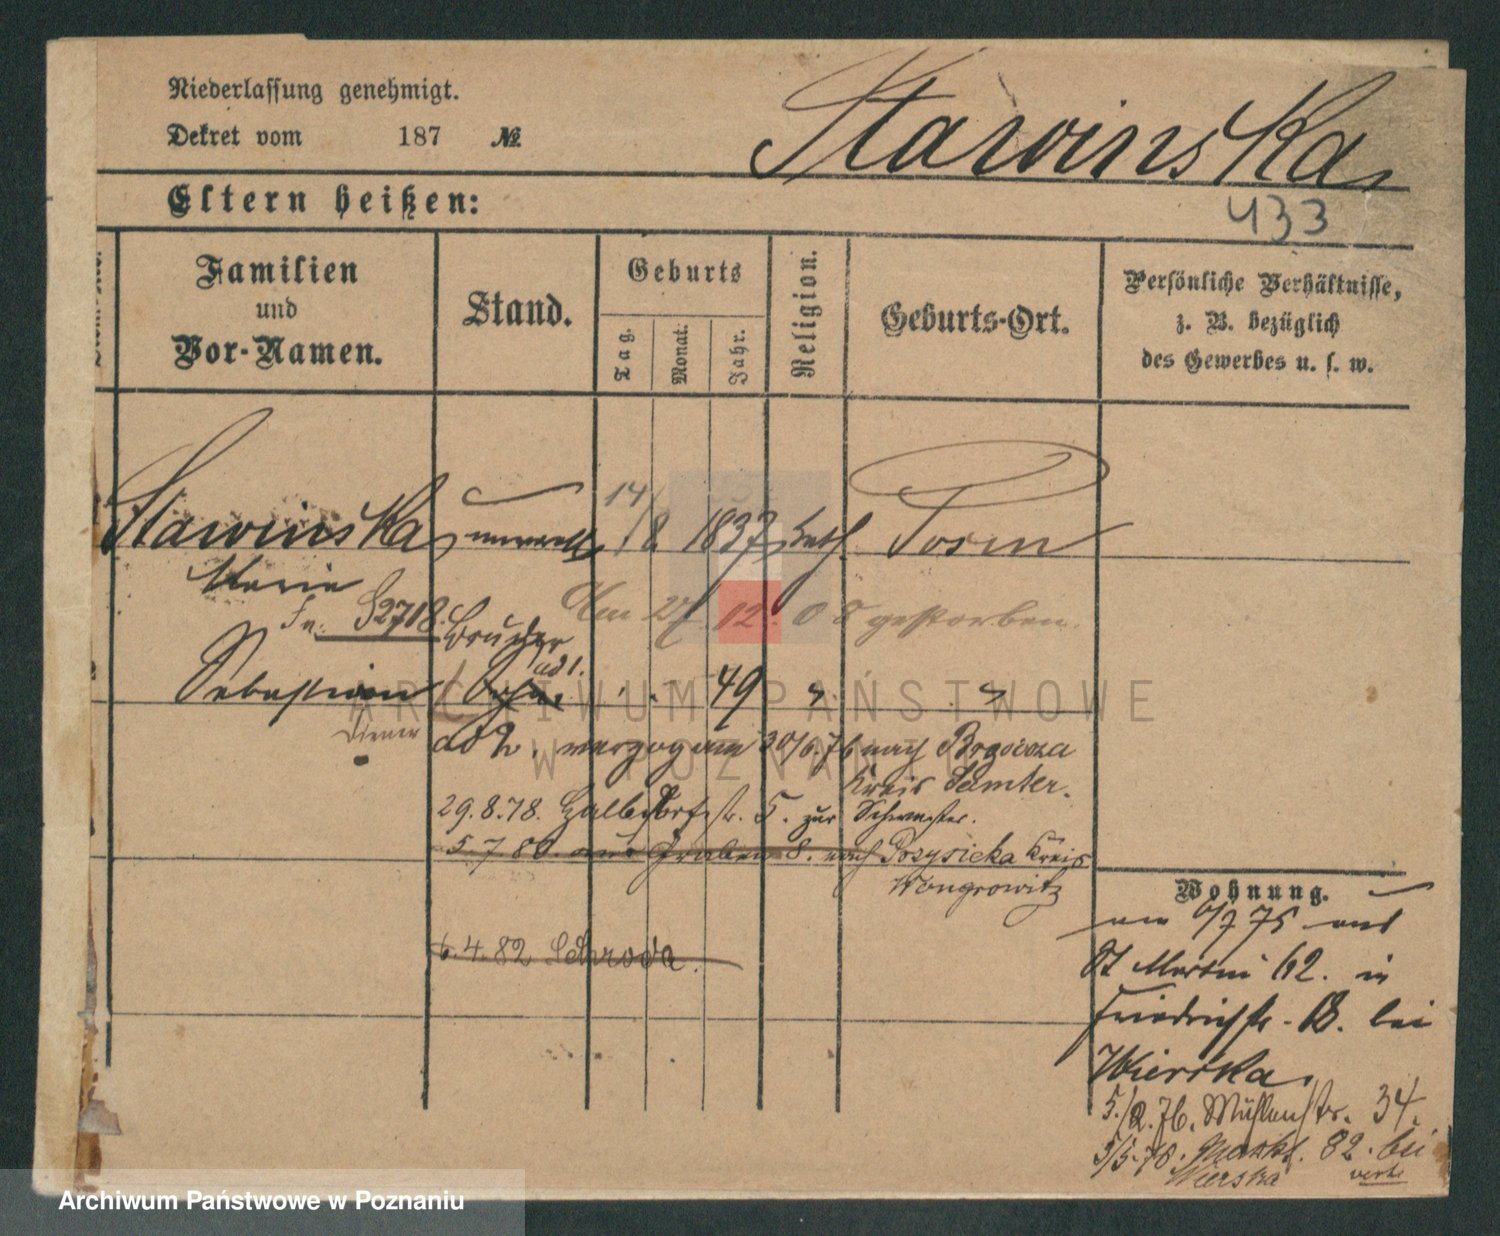 Niederlassung genehmigt.
Dekret vom 187 №
Stawinska
Eltern heißen:
433
Familien
und
Vor-Namen.
Stand.
Geburts
Tag.
Monat.
Jahr.
Religion.
Geburts-Ort.
Persönliche Verhältnisse,
z. B. bezüglich
des Gewerbes u. s. w.
Stawinska unverehl 14/8 1837 kath. Posen
Marie
S2718.
Am 27/12. 08 gestorben.
Bruder
ad 1.
Sebastian 49 " "
Diener
ad 2. verzog am 30/6.76 nach
Kreis Samter.
29.8.78. Halbdorfstr. 5. zur Schwester.
5.7.80. aus Graben 8. nach Kreis
Wongrowitz
6.4.82 Schroda.
Wohnung.
am 6/7 75 aus
St Martin 62. in
Friedrichstr. bei
Wierska
5./2.76. Mühlenstr. 34.
5/5.78. Markt. 82. bei
Wierska
ARCHIWUM PAŃSTWOWE
W POZNANIU
Archiwum Państwowe w Poznaniu